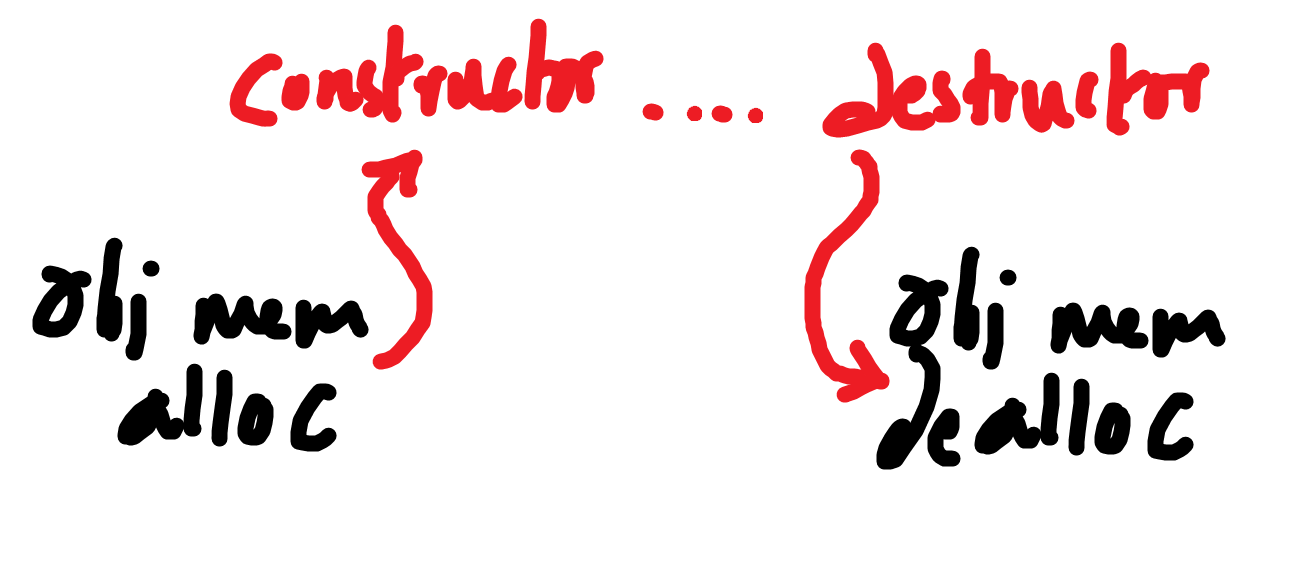 constructor .... destructor
obj mem
alloc
obj mem
dealloc